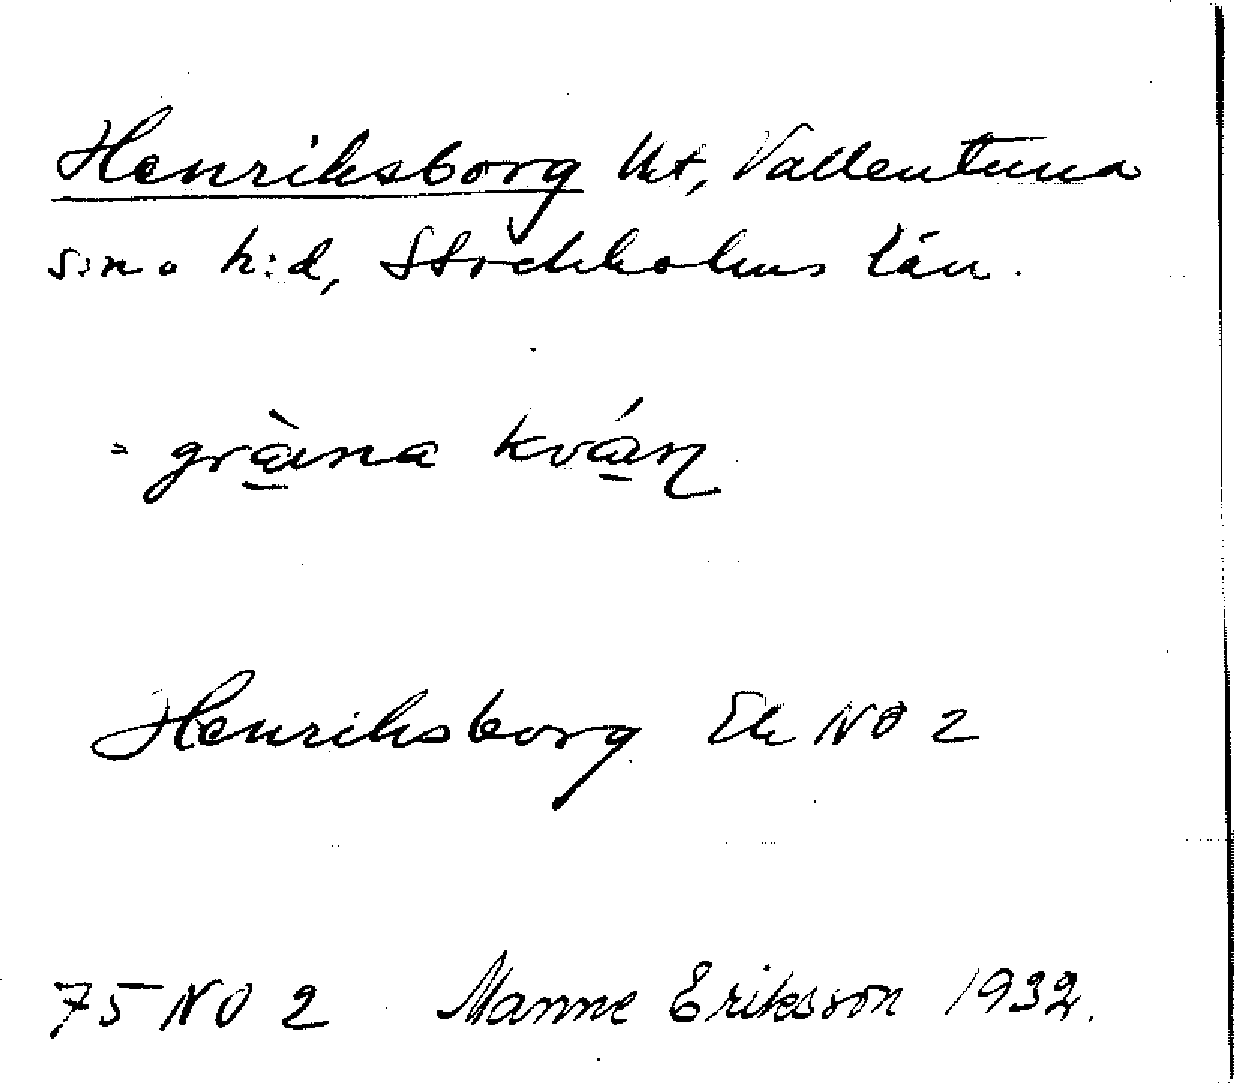 Henriksborg lht, Vallentuna
sn o h:d, Stockholms län.
= gràna kván
Henriksborg Ek NO 2
75 NO 2 Manne Eriksson 1932.